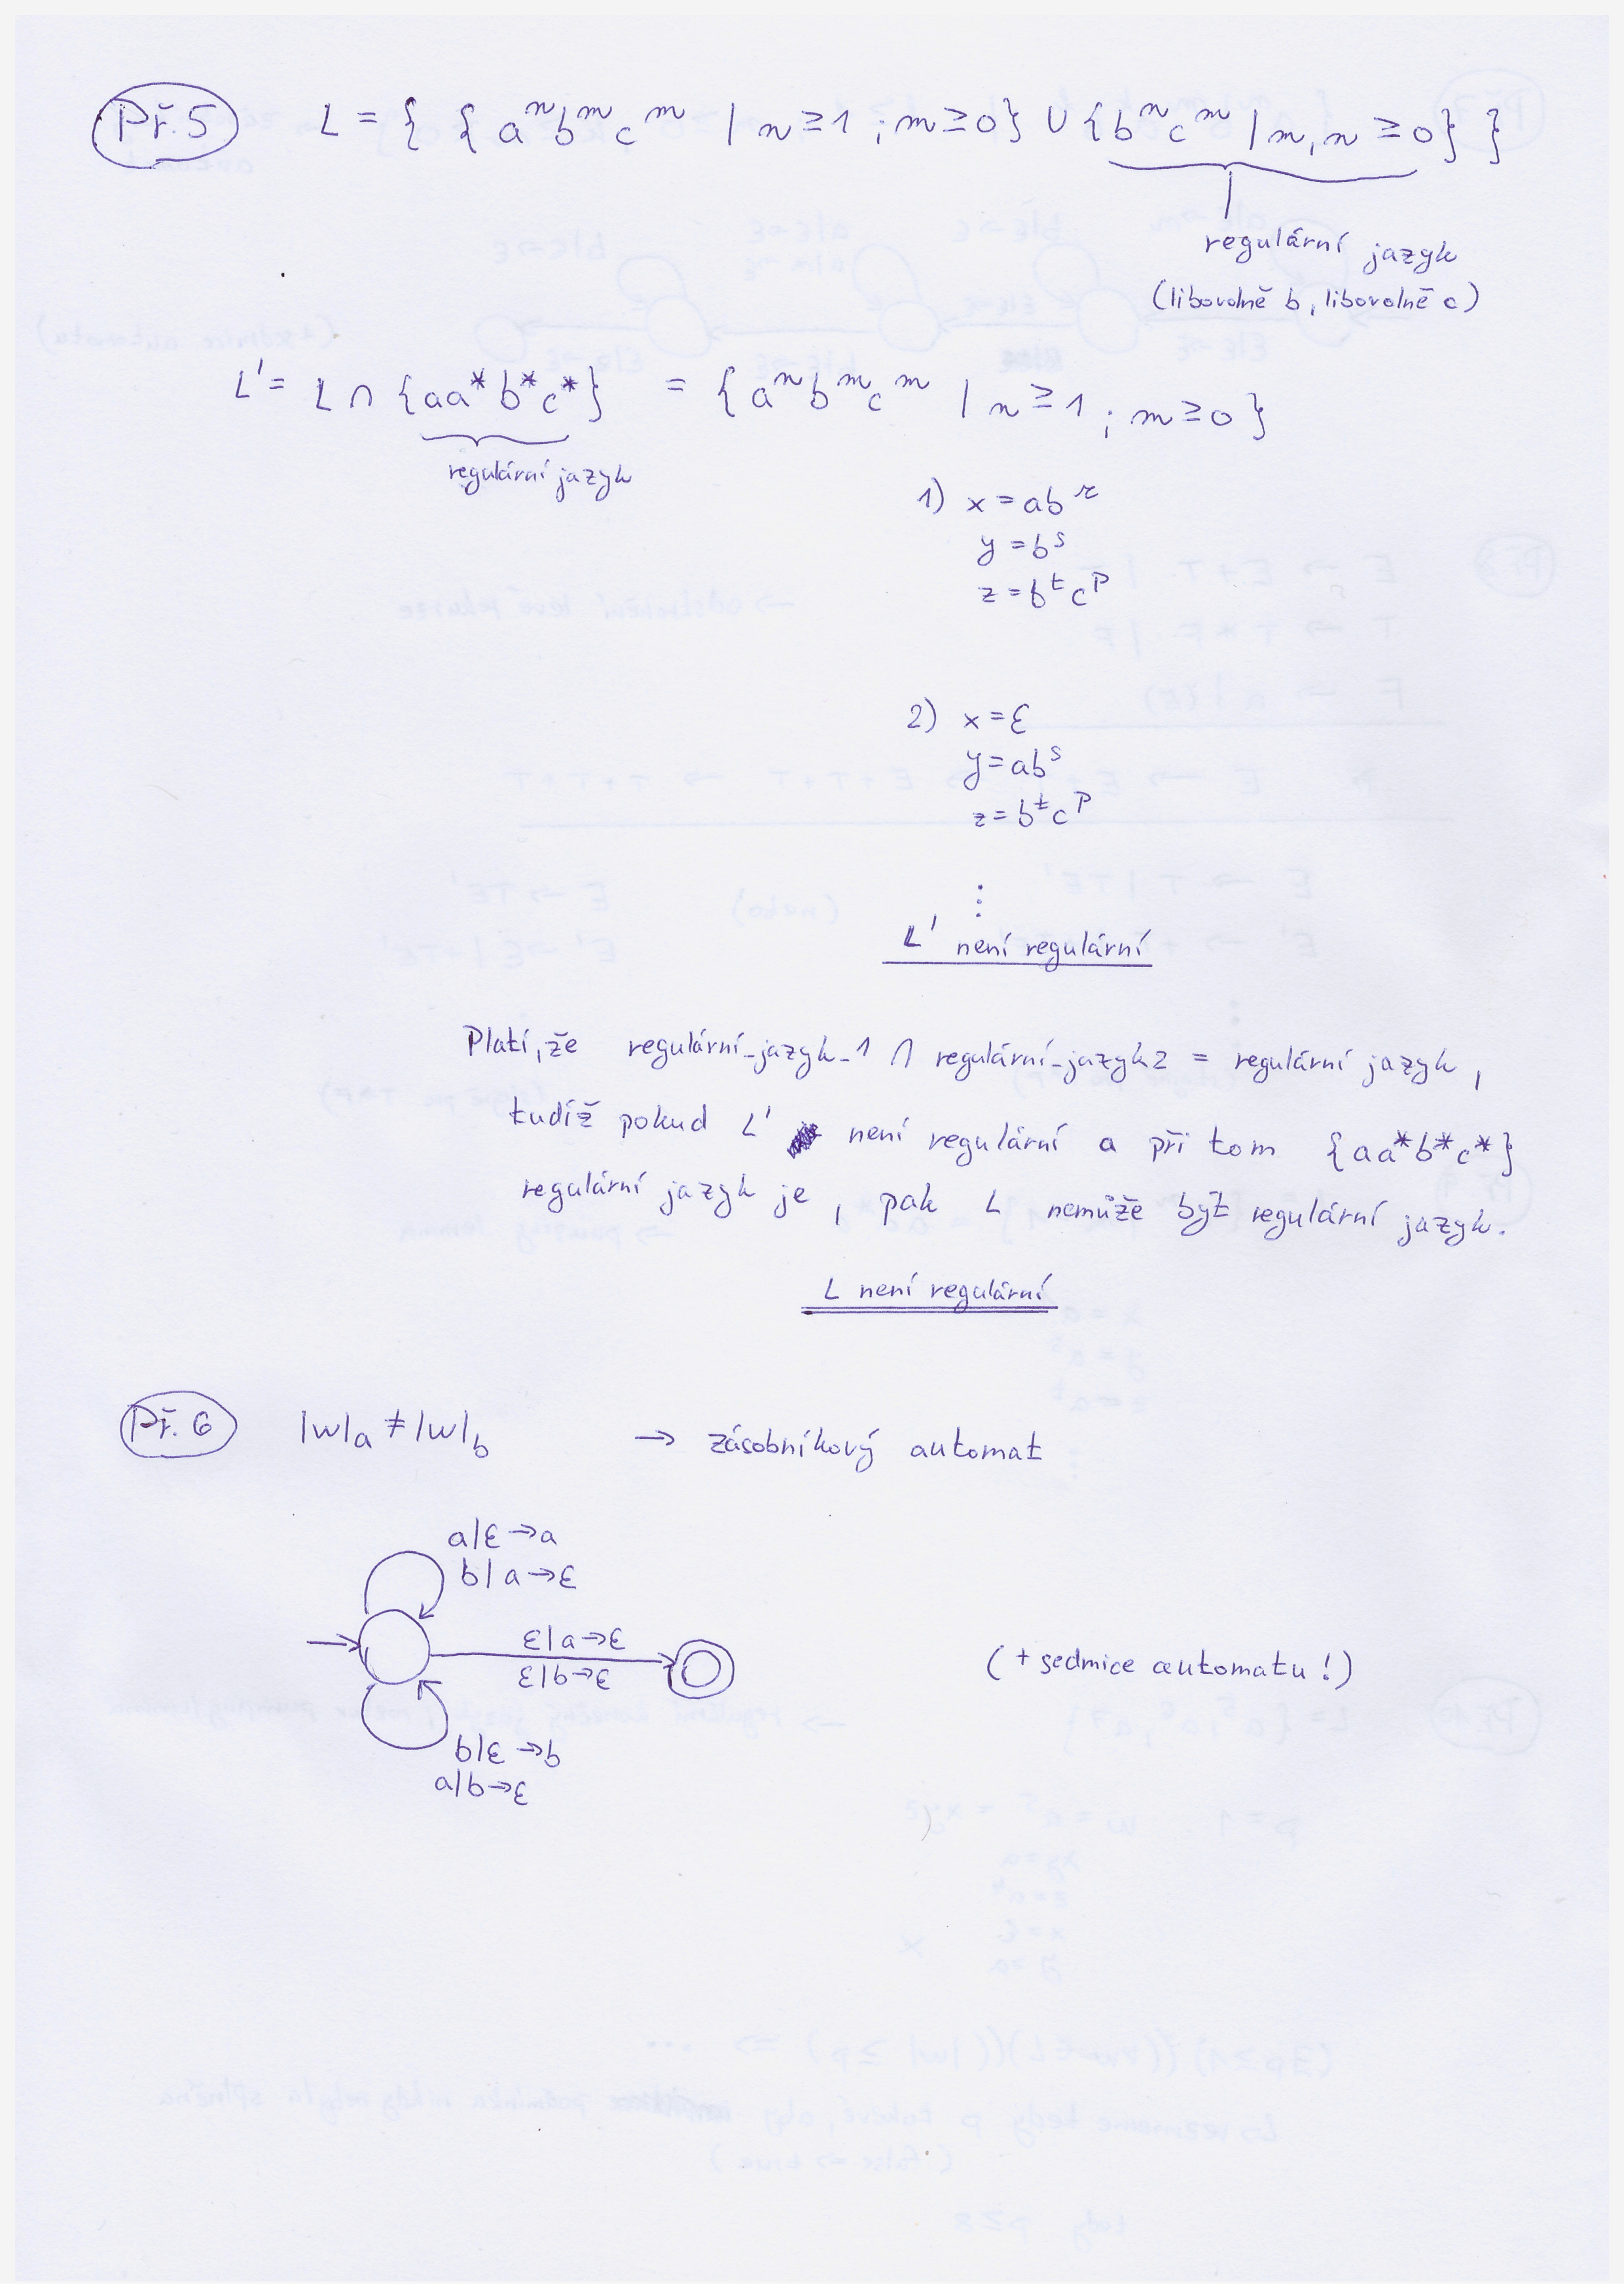 Př. 5 L = { { aⁿbᵐcᵐ | n ≥ 1 ; m ≥ 0 } ∪ { bⁿcᵐ | m, n ≥ 0 } }
regulární jazyk
(libovolně b, libovolně c)
L' = L ∩ {aa*b*c*} = { aⁿbᵐcᵐ | n ≥ 1 ; m ≥ 0 }
regulární jazyk
1) x = abʳ
y = bˢ
z = bᵗcᵖ
2) x = ε
y = abˢ
z = bᵗcᵖ
⋮
L' není regulární
Platí, že regulární-jazyk-1 ∩ regulární-jazyk2 = regulární jazyk,
tudíž pokud L' není regulární a při tom {aa*b*c*}
regulární jazyk je, pak L nemůže být regulární jazyk.
L není regulární
Př. 6 |w|a ≠ |w|b → zásobníkový automat
a|ε→a
b|a→ε
ε|a→ε
ε|b→ε
(+ sedmice automatu!)
b|ε→b
a|b→ε